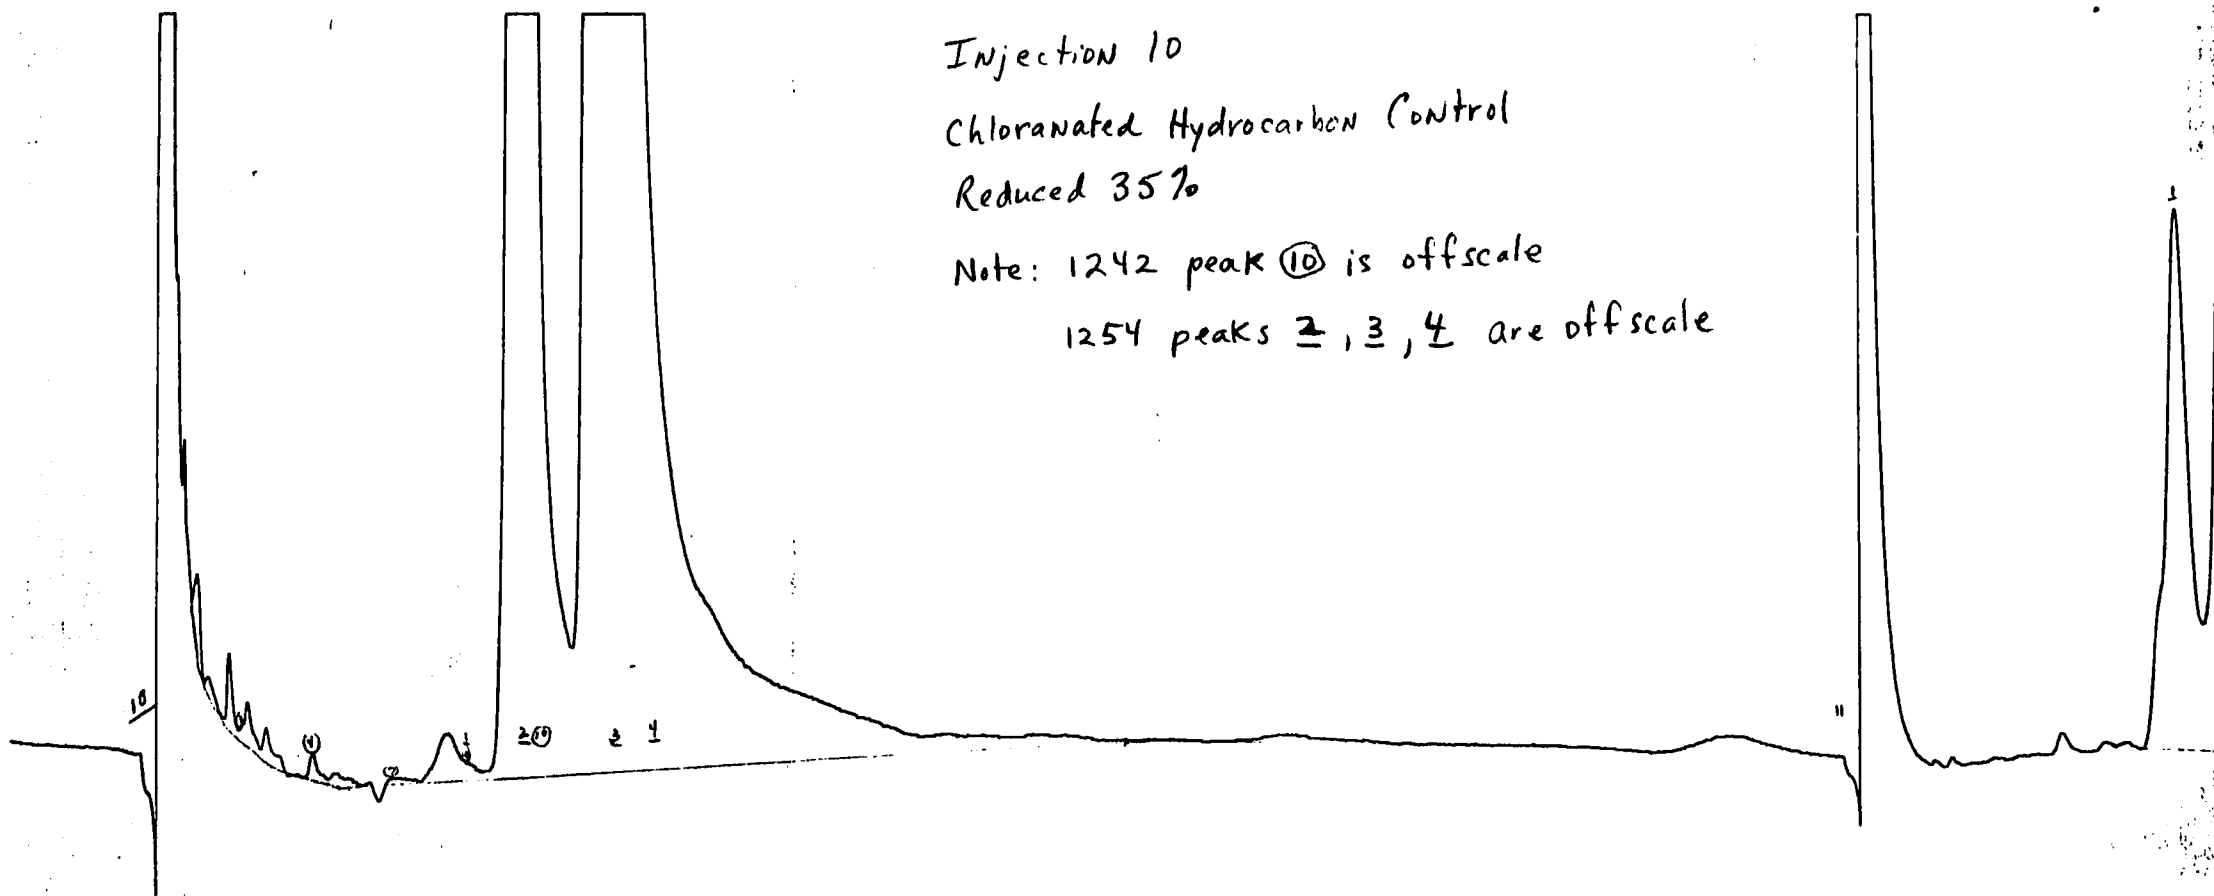 Injection 10
Chloranated Hydrocarbon Control
Reduced 35%
Note: 1242 peak ⑩ is offscale
1254 peaks 2, 3, 4 are offscale
1
10
11
④
1
2 ⑩ 3 4